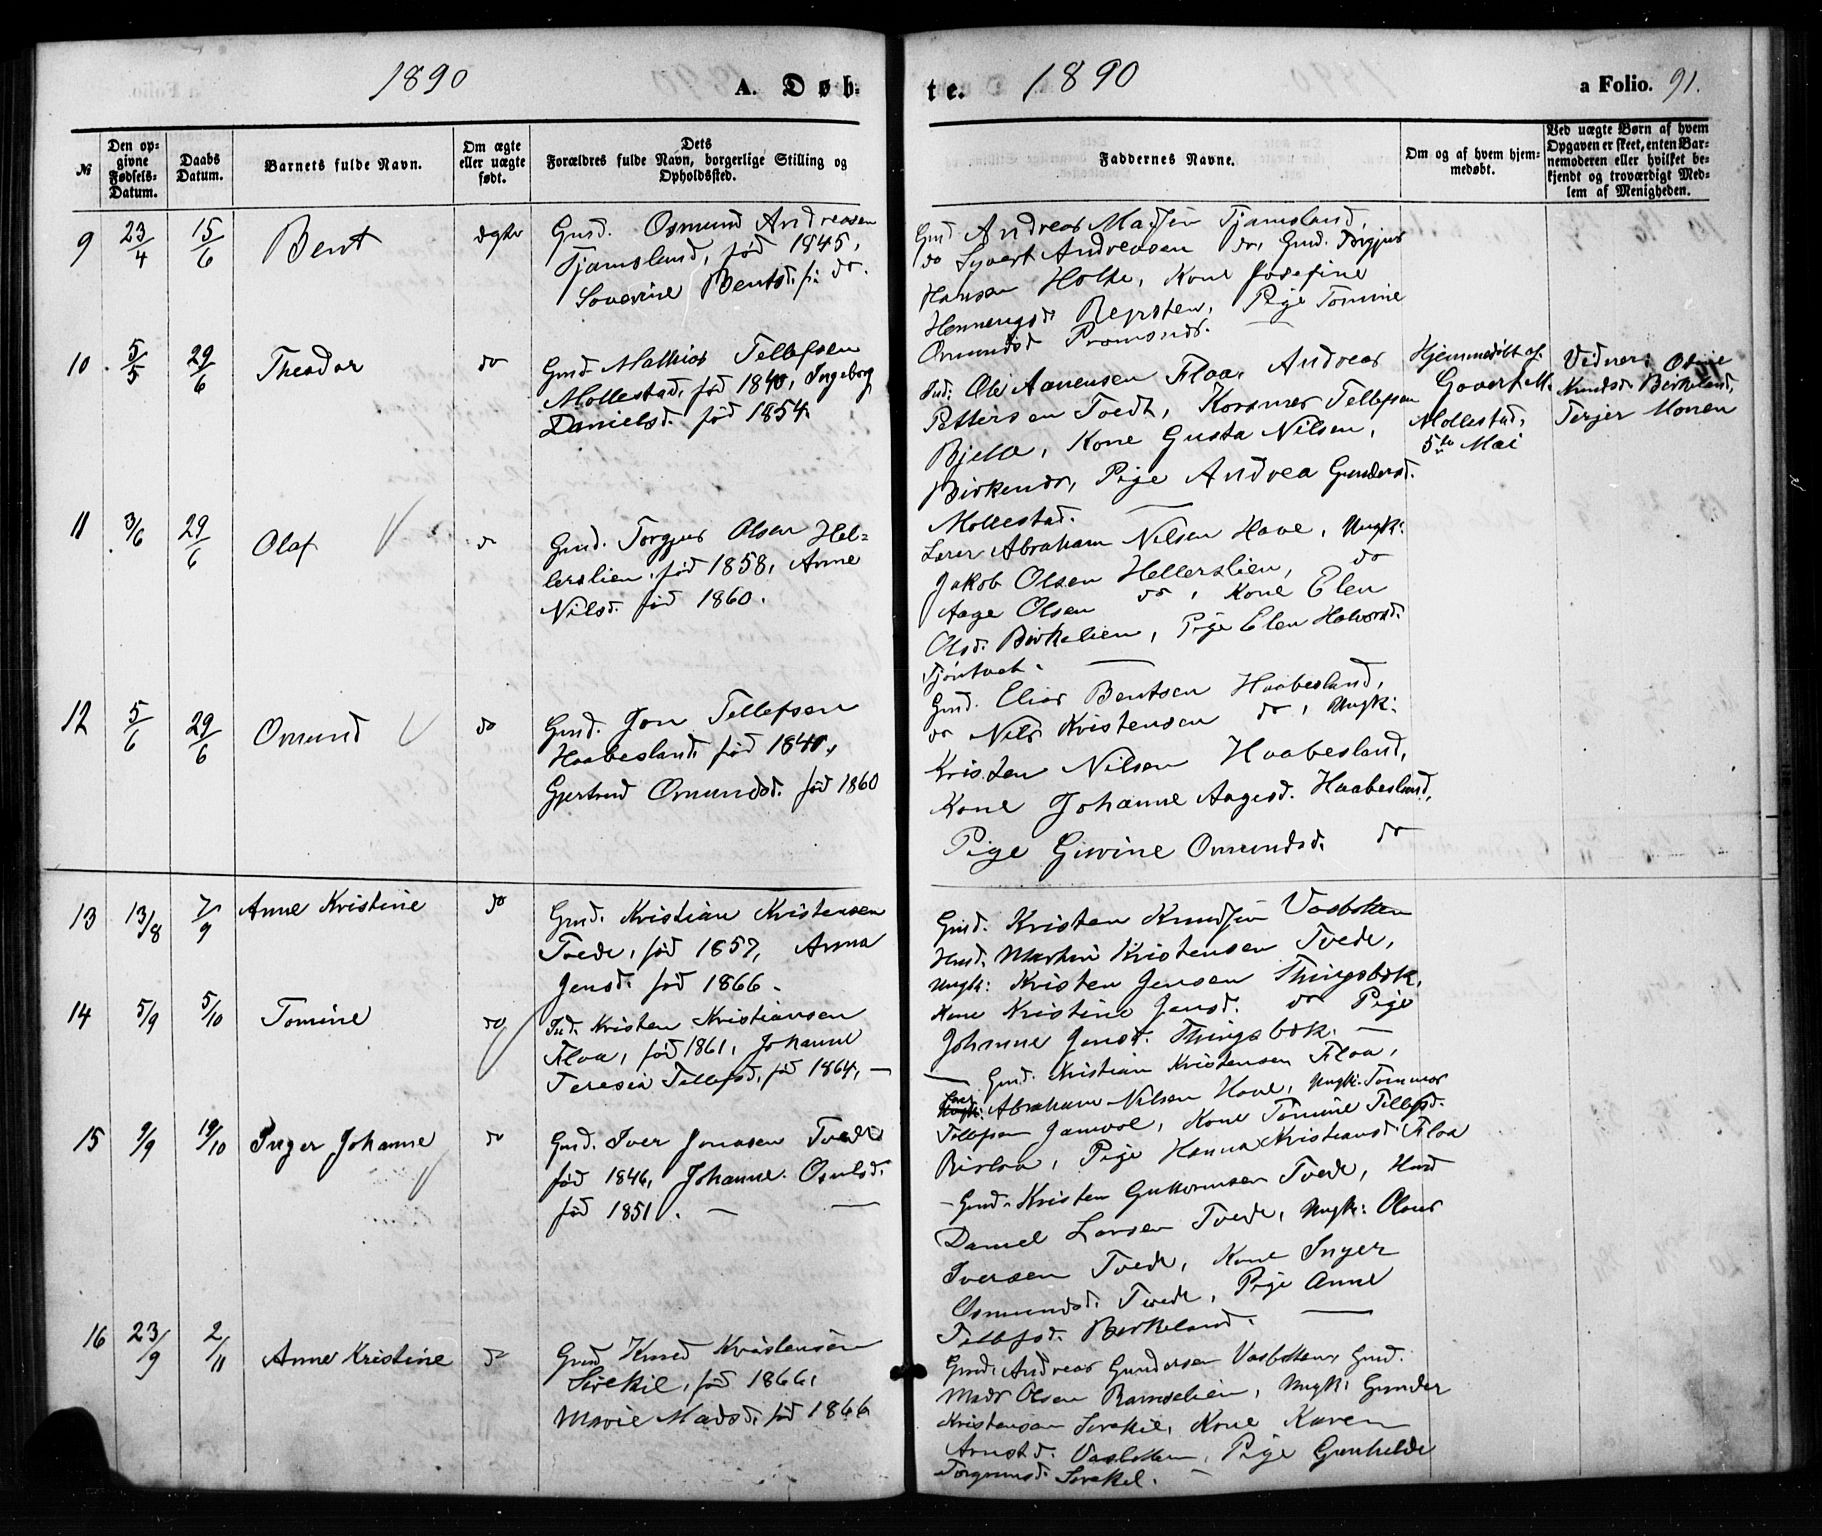 1890 A. Døb-
te. 1890 a Folio. 91.
№
Den op-
givne
Fødsels-
Datum.
Daabs
Datum.
Barnets fulde Navn.
Om ægte
eller uægte
født.
Dets
Forældres fulde Navn, borgerlige Stilling og
Opholdssted.
Faddernes Navne.
Om og af hvem hjem-
medøbt.
Ved uægte Børn af hvem
Opgaven er skeet, enten Bar-
nemoderen eller hvilket be-
kjendt og troværdigt Med-
lem af Menigheden.
9 23/4 15/6 Bent ægte
Gmd. Osmund Andreasen
Tjamsland, fød 1845,
Severine Bentsd. do.
Gmd Andreas Madsen Tjamsland,
do Syvert Andreasen do, Gmd. Torgjus
Hansen Holte, Kone Josefine
Henningsd. Repsten, Pige Tomine
Osmundsd
10 5/5 29/6 Theodor do
Gmd Mathias Tellefsen
Mollestad, fød 1840, Ingeborg
Danielsd. fød 1854.
Ole Aanensen Flaa, Andreas
Pettersen Tvedt, Tellefsen
Kone Gusta Nilsen,
Pige Andrea Gundersd.
Mollestad.
Hjemmedøbt af
Govert M.
Mollestad,
5te Mai
Vidner:
Knudsd. Birkeland,
Terjer Monen
11 3/6 29/6 Olaf do
Gmd. Torgjus Olsen Hel-
lerslien, fød 1858, Anne
Nilsd. fød 1860.
Lærer Abraham Nilsen Hove, Ungk:
Jakob Olsen Hellerslien, do
Aage Olsen do, Kone Elen
Olsd. Birkelien, Pige Elen Halvorsd.
12 5/6 29/6 Osmund do
Gmd. Jon Tellefsen
Haabesland fød 1840,
Gjertrud Osmundsd. fød 1860
Gmd. Elias Bentsen Haabesland,
do Nils Kristensen do, Ungk:
Kristen Nilsen Haabesland,
Kone Johanne Aagesd. Haabesland,
Pige Osmundsd. do
13 13/8 7/9 Anne Kristine do
Gmd. Kristian Kristensen
Tvede, fød 1857, Anna
Jensd. fød 1866.
Gmd. Kristen Knudsen Vasbotten
Martin Kristensen Tvede,
Ungk: Kristen Jensen Thingsbæk,
Kone Kristine Jensd. do Pige
Johanne Jensd. Thingsbæk.
14 5/9 5/10 Tomine do
Ind. Kristen Kristiansen
Flaa, fød 1861, Johanne
Teresia Tellefsd, fød 1864,
Gmd. Kristian Kristensen Flaa,
Abraham Nilsen Hove, Ungk: Tommas
Tellefsen, Kone Tomine Tellefsd.
Birkeland, Pige Hanna Kristiansd. Flaa
15 9/9 19/10 Inger Johanne do
Gmd. Iver Jonasen Tvede
fød 1846, Johanne
fød 1851.
Gmd. Kristen Guttormsen Tvede,
Daniel Larsen Tvede, Ungk: Olaus
Iversen Tvede, Kone Inger
Osmundsd. Tvede, Pige Anne
Tellefsd. Birkeland.
16 23/9 2/11 Anne Kristine do
Gmd Knud Kristensen
fød 1866,
Marie Madsd. fød 1866
Gmd. Andreas Gundersen Vasbotten, Gmd.
Mads Olsen Ramselien, Ungk: Gunder
Kristensen Kone Karen
Vasbotten, Pige Gunhilde